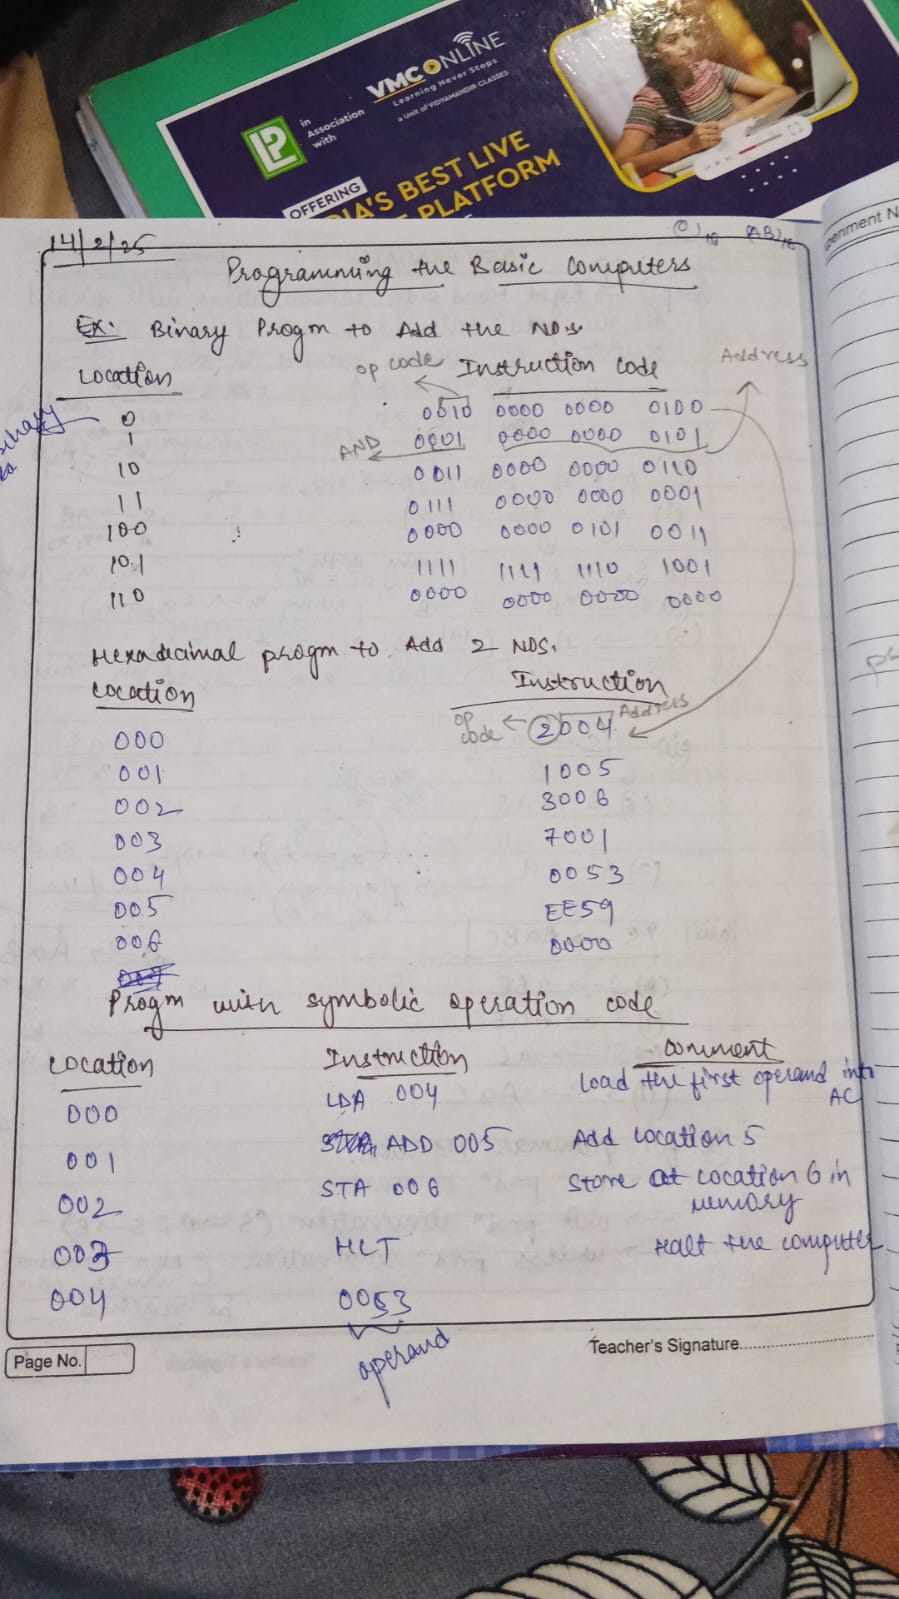 in
Association
with
VMC ONLINE
Learning Never Stops
a Unit of VIDYAMANDIR CLASSES
OFFERING
IA'S BEST LIVE
PLATFORM
14/2/25
( )16 (AB)16
Programming the Basic Computers
Ex: Binary Progm to Add the NOs.
Location op code Instruction Code Address
0 0010 0000 0000 0100
1 AND 0001 0000 0000 0101
10 0011 0000 0000 0110
11 0111 0000 0000 0001
100 0000 0000 0101 0011
101 1111 1111 1110 1001
110 0000 0000 0000 0000
Hexadecimal progm to Add 2 NOS.
Location Instruction
000 op code 2004 Address
001 1005
002 3006
003 7001
004 0053
005 EE59
006 0000
Progm with symbolic operation code
Location Instruction Comment
000 LDA 004 Load the first operand into AC
001 ADD 005 Add Location 5
002 STA 006 Store at Location 6 in memory
003 HLT Halt the computer
004 0053
operand
Page No.
Teacher's Signature